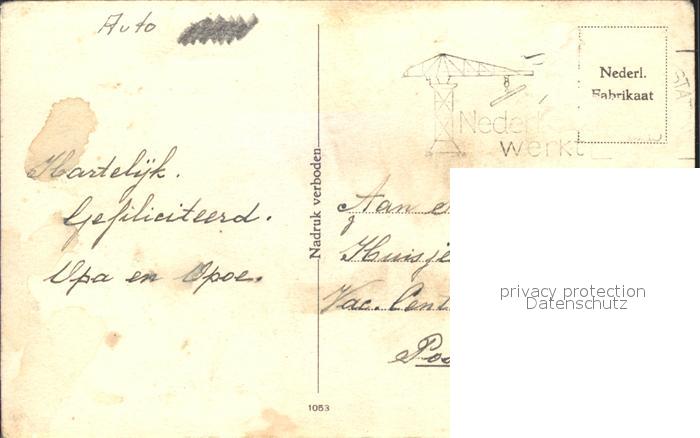 Auto
Hartelijk.
Gefiliciteerd.
Opa en Opoe.
Nadruk verboden
1053
Nederl.
Fabrikaat
Neder
werkt
Aan
Huisje
Vac.
privacy protection
Datenschutz